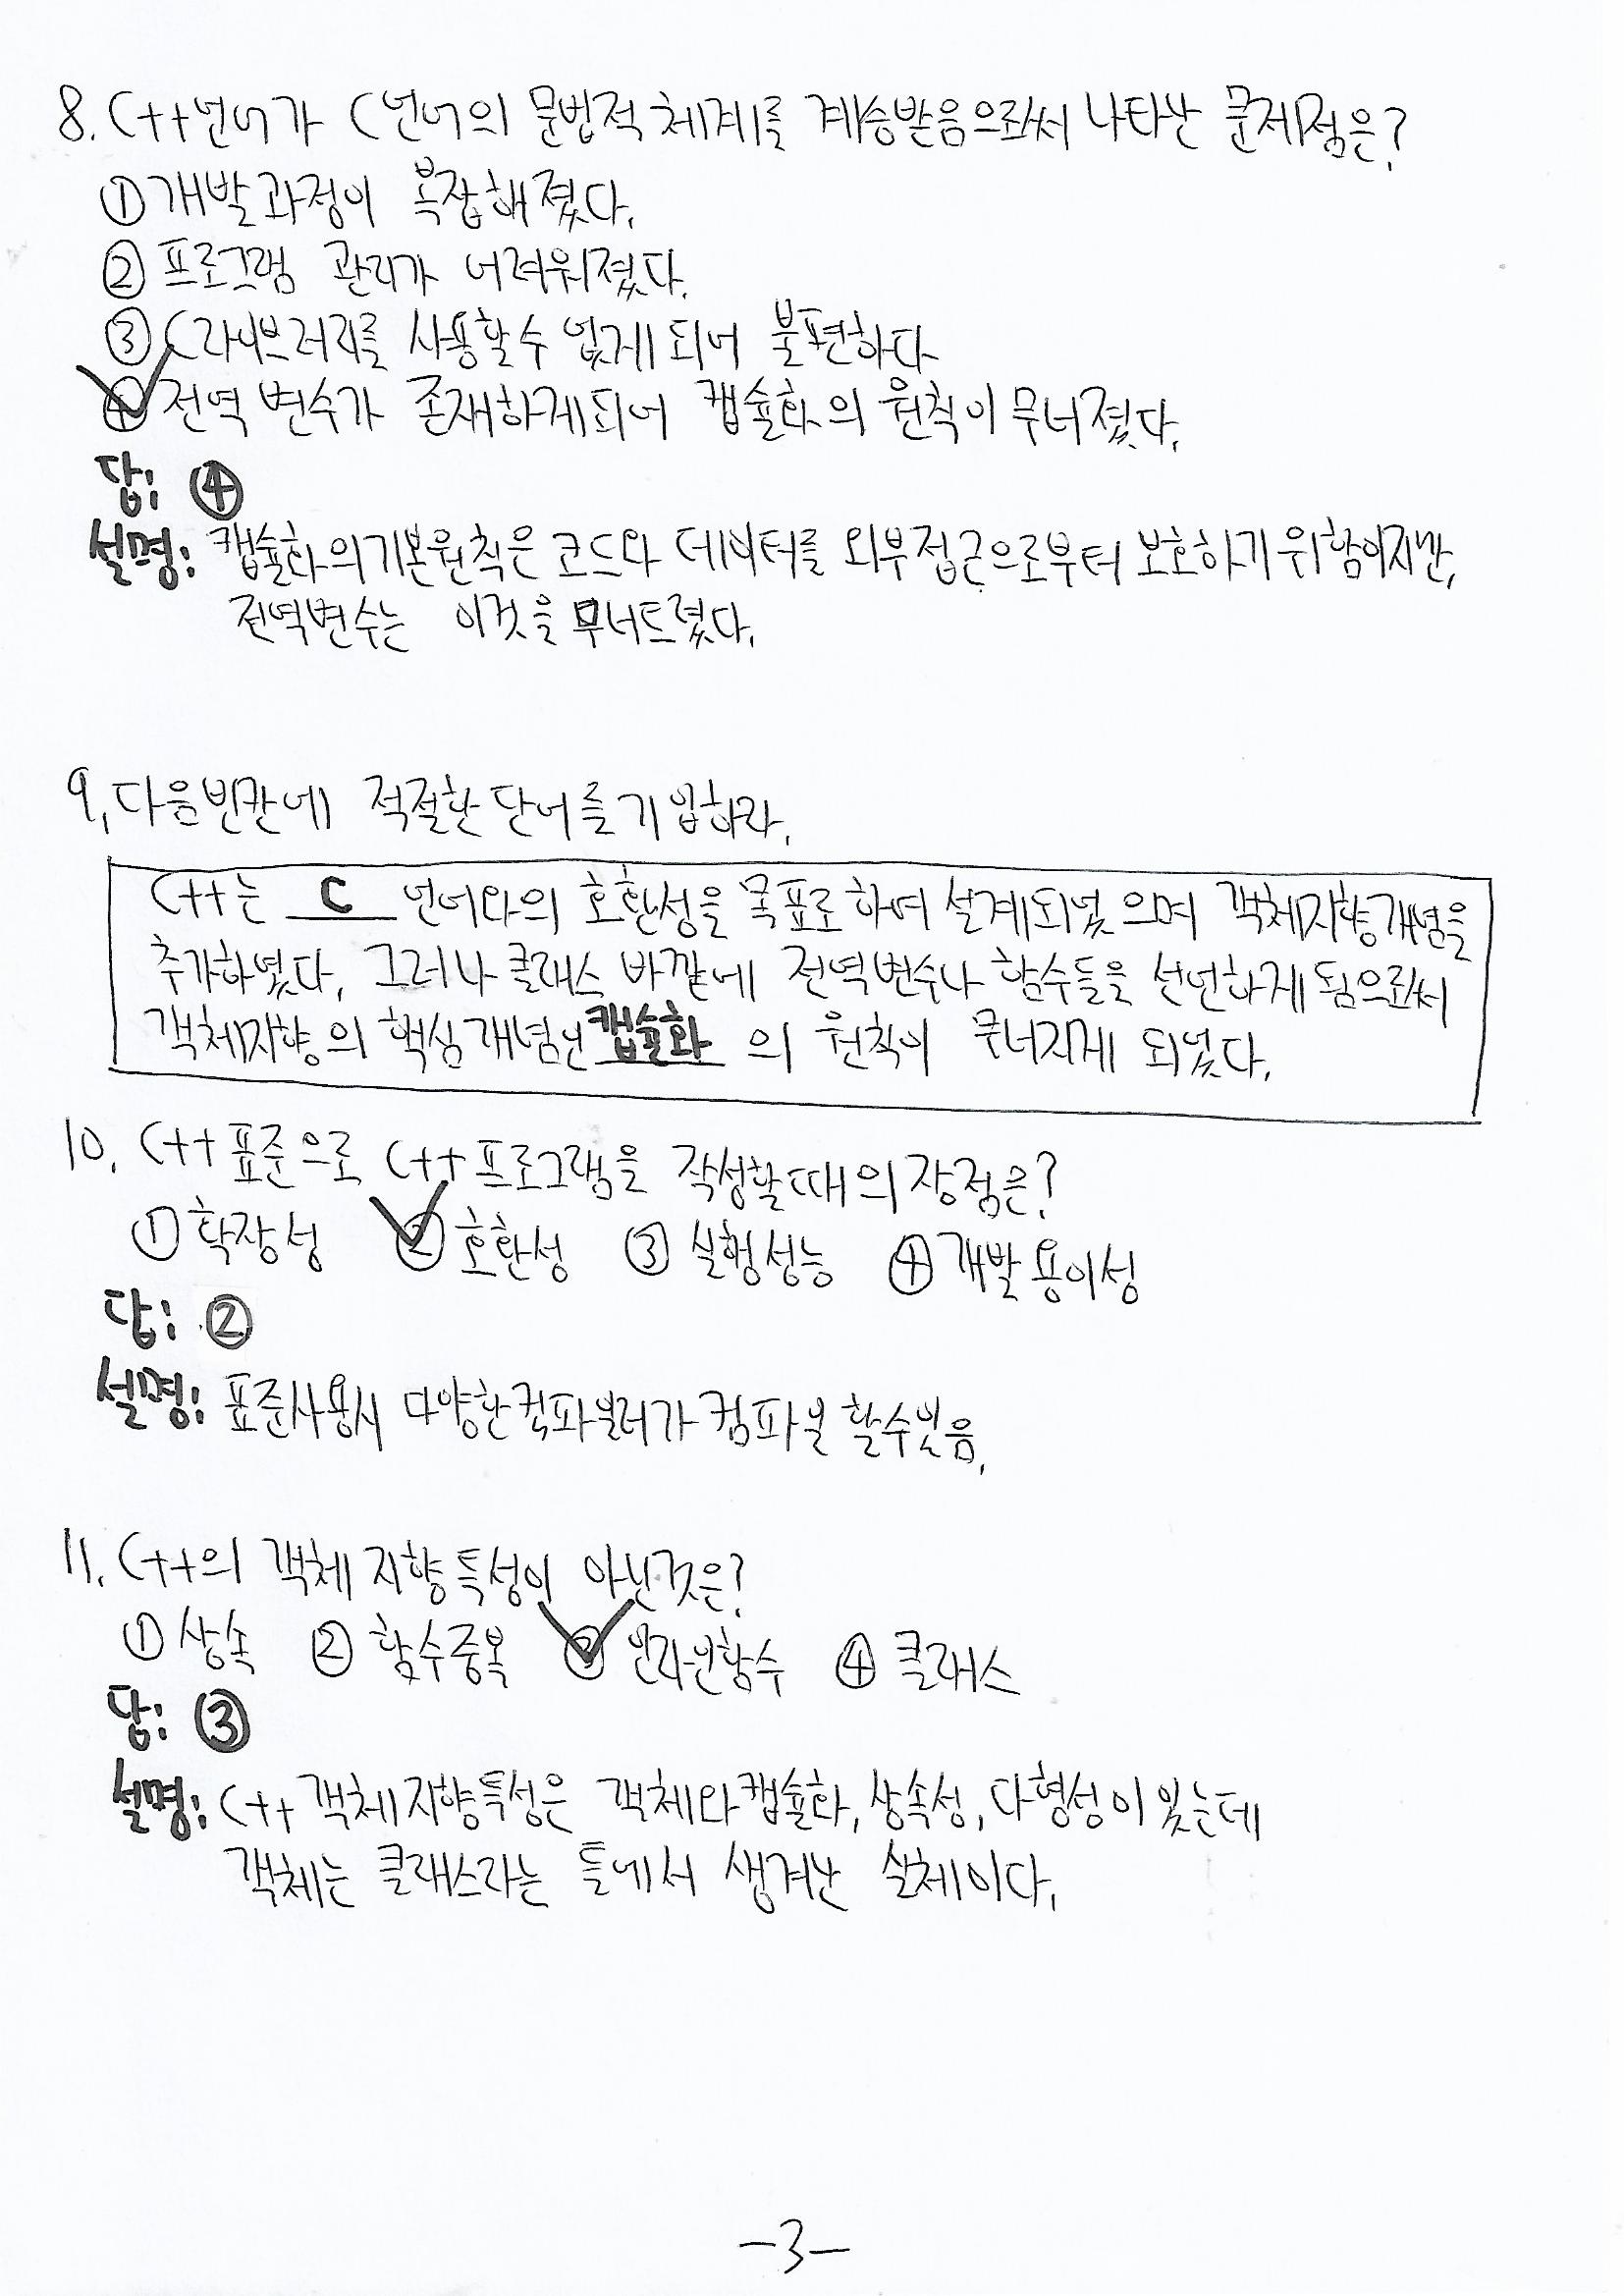 8. C++언어가 C언어의 문법적 체계를 계승받음으로써 나타난 문제점은?
① 개발과정이 복잡해졌다.
② 프로그램 관리가 어려워졌다.
③ C라이브러리를 사용할수 없게 되어 불편하다
④ 전역 변수가 존재하게되어 캡슐화의 원칙이 무너졌다.
답: ④
설명: 캡슐화의 기본원칙은 코드와 데이터를 외부접근으로부터 보호하기 위함이지만,
전역변수는 이것을 무너드렸다.
9. 다음빈칸에 적절한 단어를 기입하라.
C++는 C 언어와의 호환성을 목표로 하여 설계되었으며 객체지향개념을
추가하였다. 그러나 클래스 바깥에 전역변수나 함수들을 선언하게 됨으로써
객체지향의 핵심개념인 캡슐화 의 원칙이 무너지게 되었다.
10. C++ 표준으로 C++프로그램을 작성할때의 장점은?
① 확장성 ② 호환성 ③ 실행성능 ④ 개발용이성
답: ②
설명: 표준사용시 다양한컴파일러가 컴파일 할수있음.
11. C++의 객체 지향 특성이 아닌것은?
① 상속 ② 함수중복 ③ 인라인함수 ④ 클래스
답: ③
설명: C++ 객체지향특성은 객체와 캡슐화, 상속성, 다형성이 있는데
객체는 클래스라는 틀에서 생겨난 실체이다.
-3-